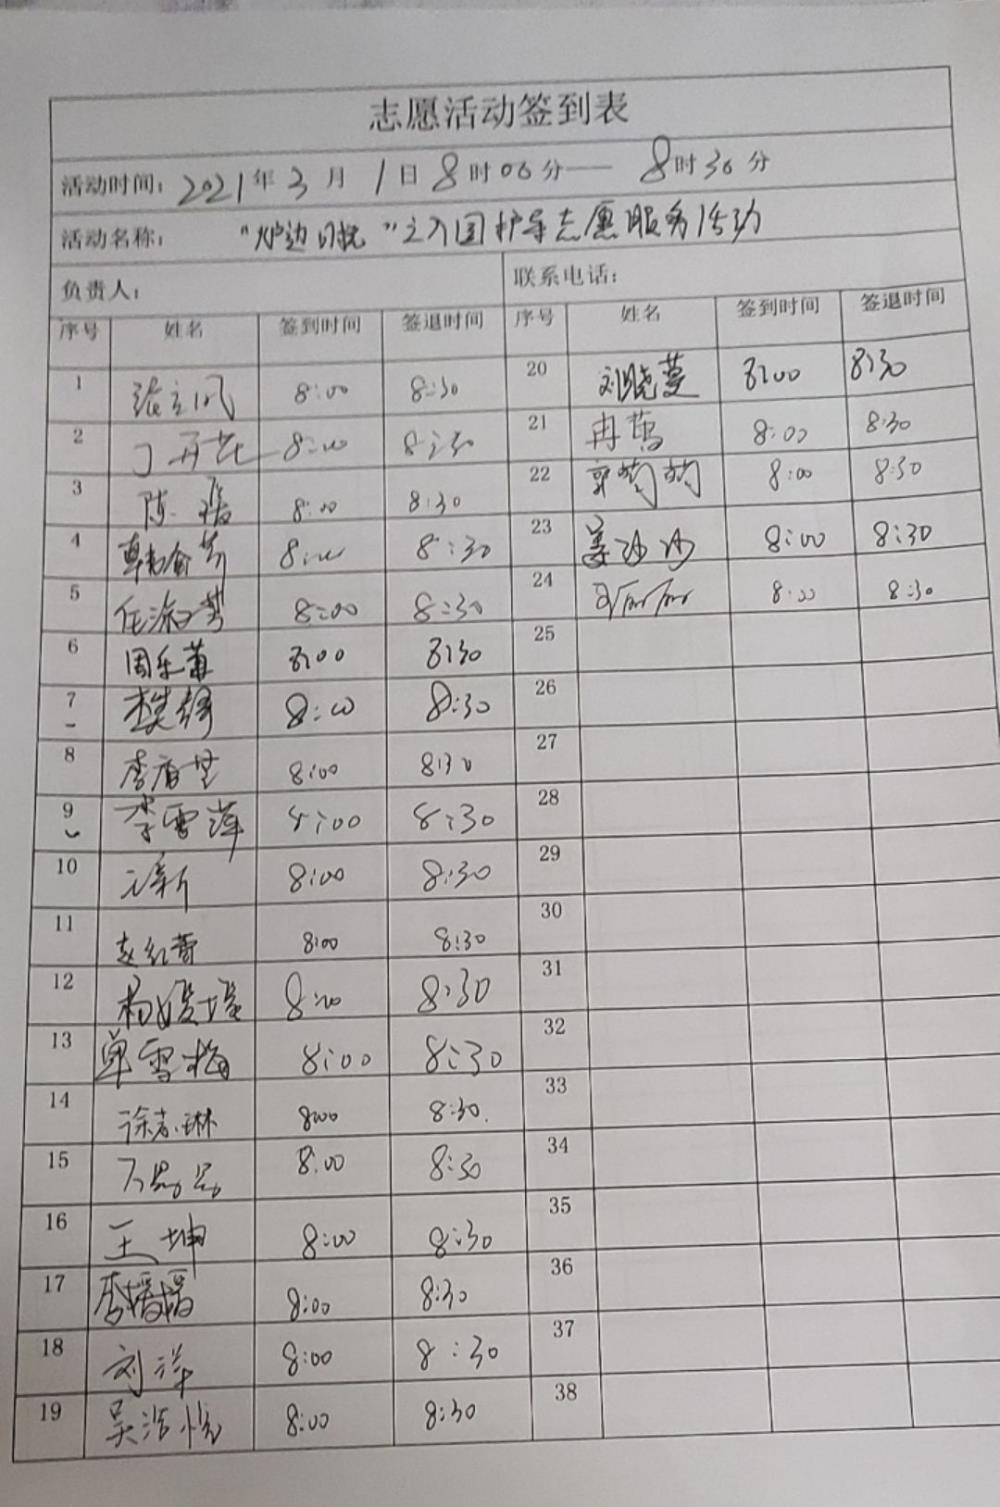 志愿活动签到表
活动时间：2021年3月1日8时00分—8时30分
活动名称： 入园护导志愿服务活动
负责人： 联系电话：
序号 姓名 签到时间 签退时间 序号 姓名 签到时间 签退时间
1 张立凤 8:00 8:30 20 刘晓蔓 8:00 8:30
2 8:00 8:30 21 冉 8:00 8:30
3 陈 8:00 8:30 22 郭 8:00 8:30
4 8:00 8:30 23 姜沙沙 8:00 8:30
5 任 8:00 8:30 24 8:00 8:30
6 周乐 8:00 8:30 25
7 樊绣 8:00 8:30 26
8 李 8:00 8:30 27
9 李雪萍 8:00 8:30 28
10 新 8:00 8:30 29
11 赵红蕾 8:00 8:30 30
12 杨媛媛 8:00 8:30 31
13 单雪梅 8:00 8:30 32
14 徐志琳 8:00 8:30 33
15 8:00 8:30 34
16 王坤 8:00 8:30 35
17 李 8:00 8:30 36
18 刘洋 8:00 8:30 37
19 吴浩悦 8:00 8:30 38